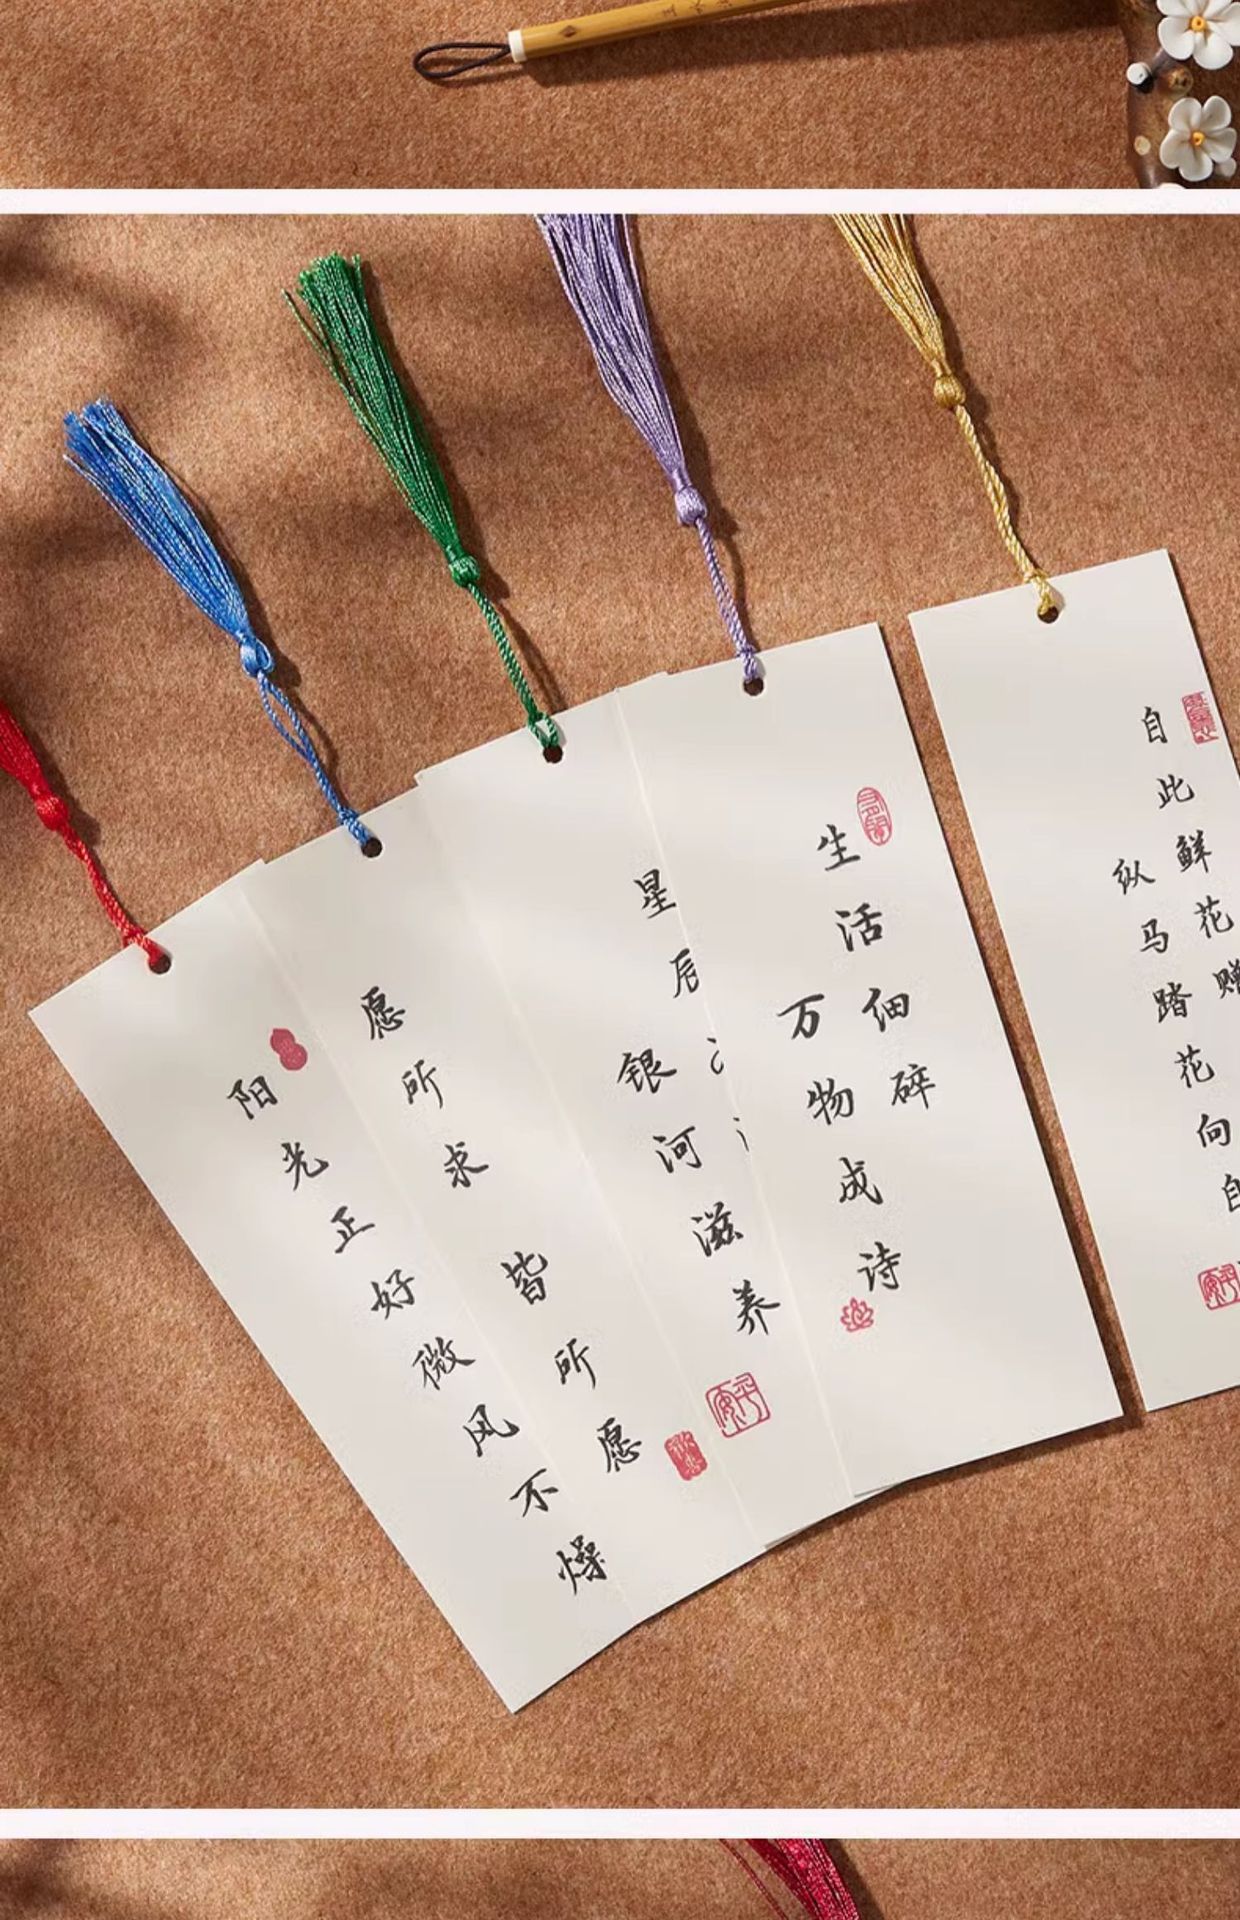 阳光正好微风不燥
愿所求皆所愿
星辰
银河滋养
生活细碎
万物成诗
自此鲜花赠
纵马踏花向自
平安